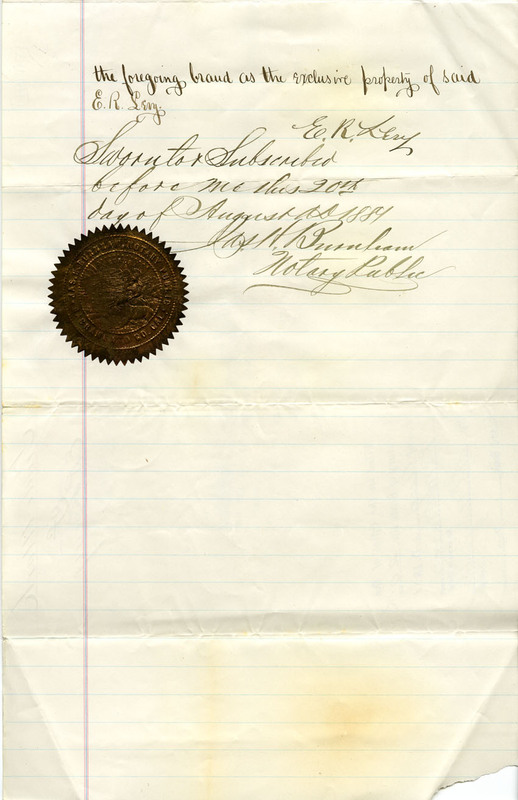 the foregoing brand as the exclusive property of said
E. R. Levy.
E. R. Levy
Sworn to & Subscribed
before me this 20th
day of August AD 1884
Jas. H. Burnham
Notary Public